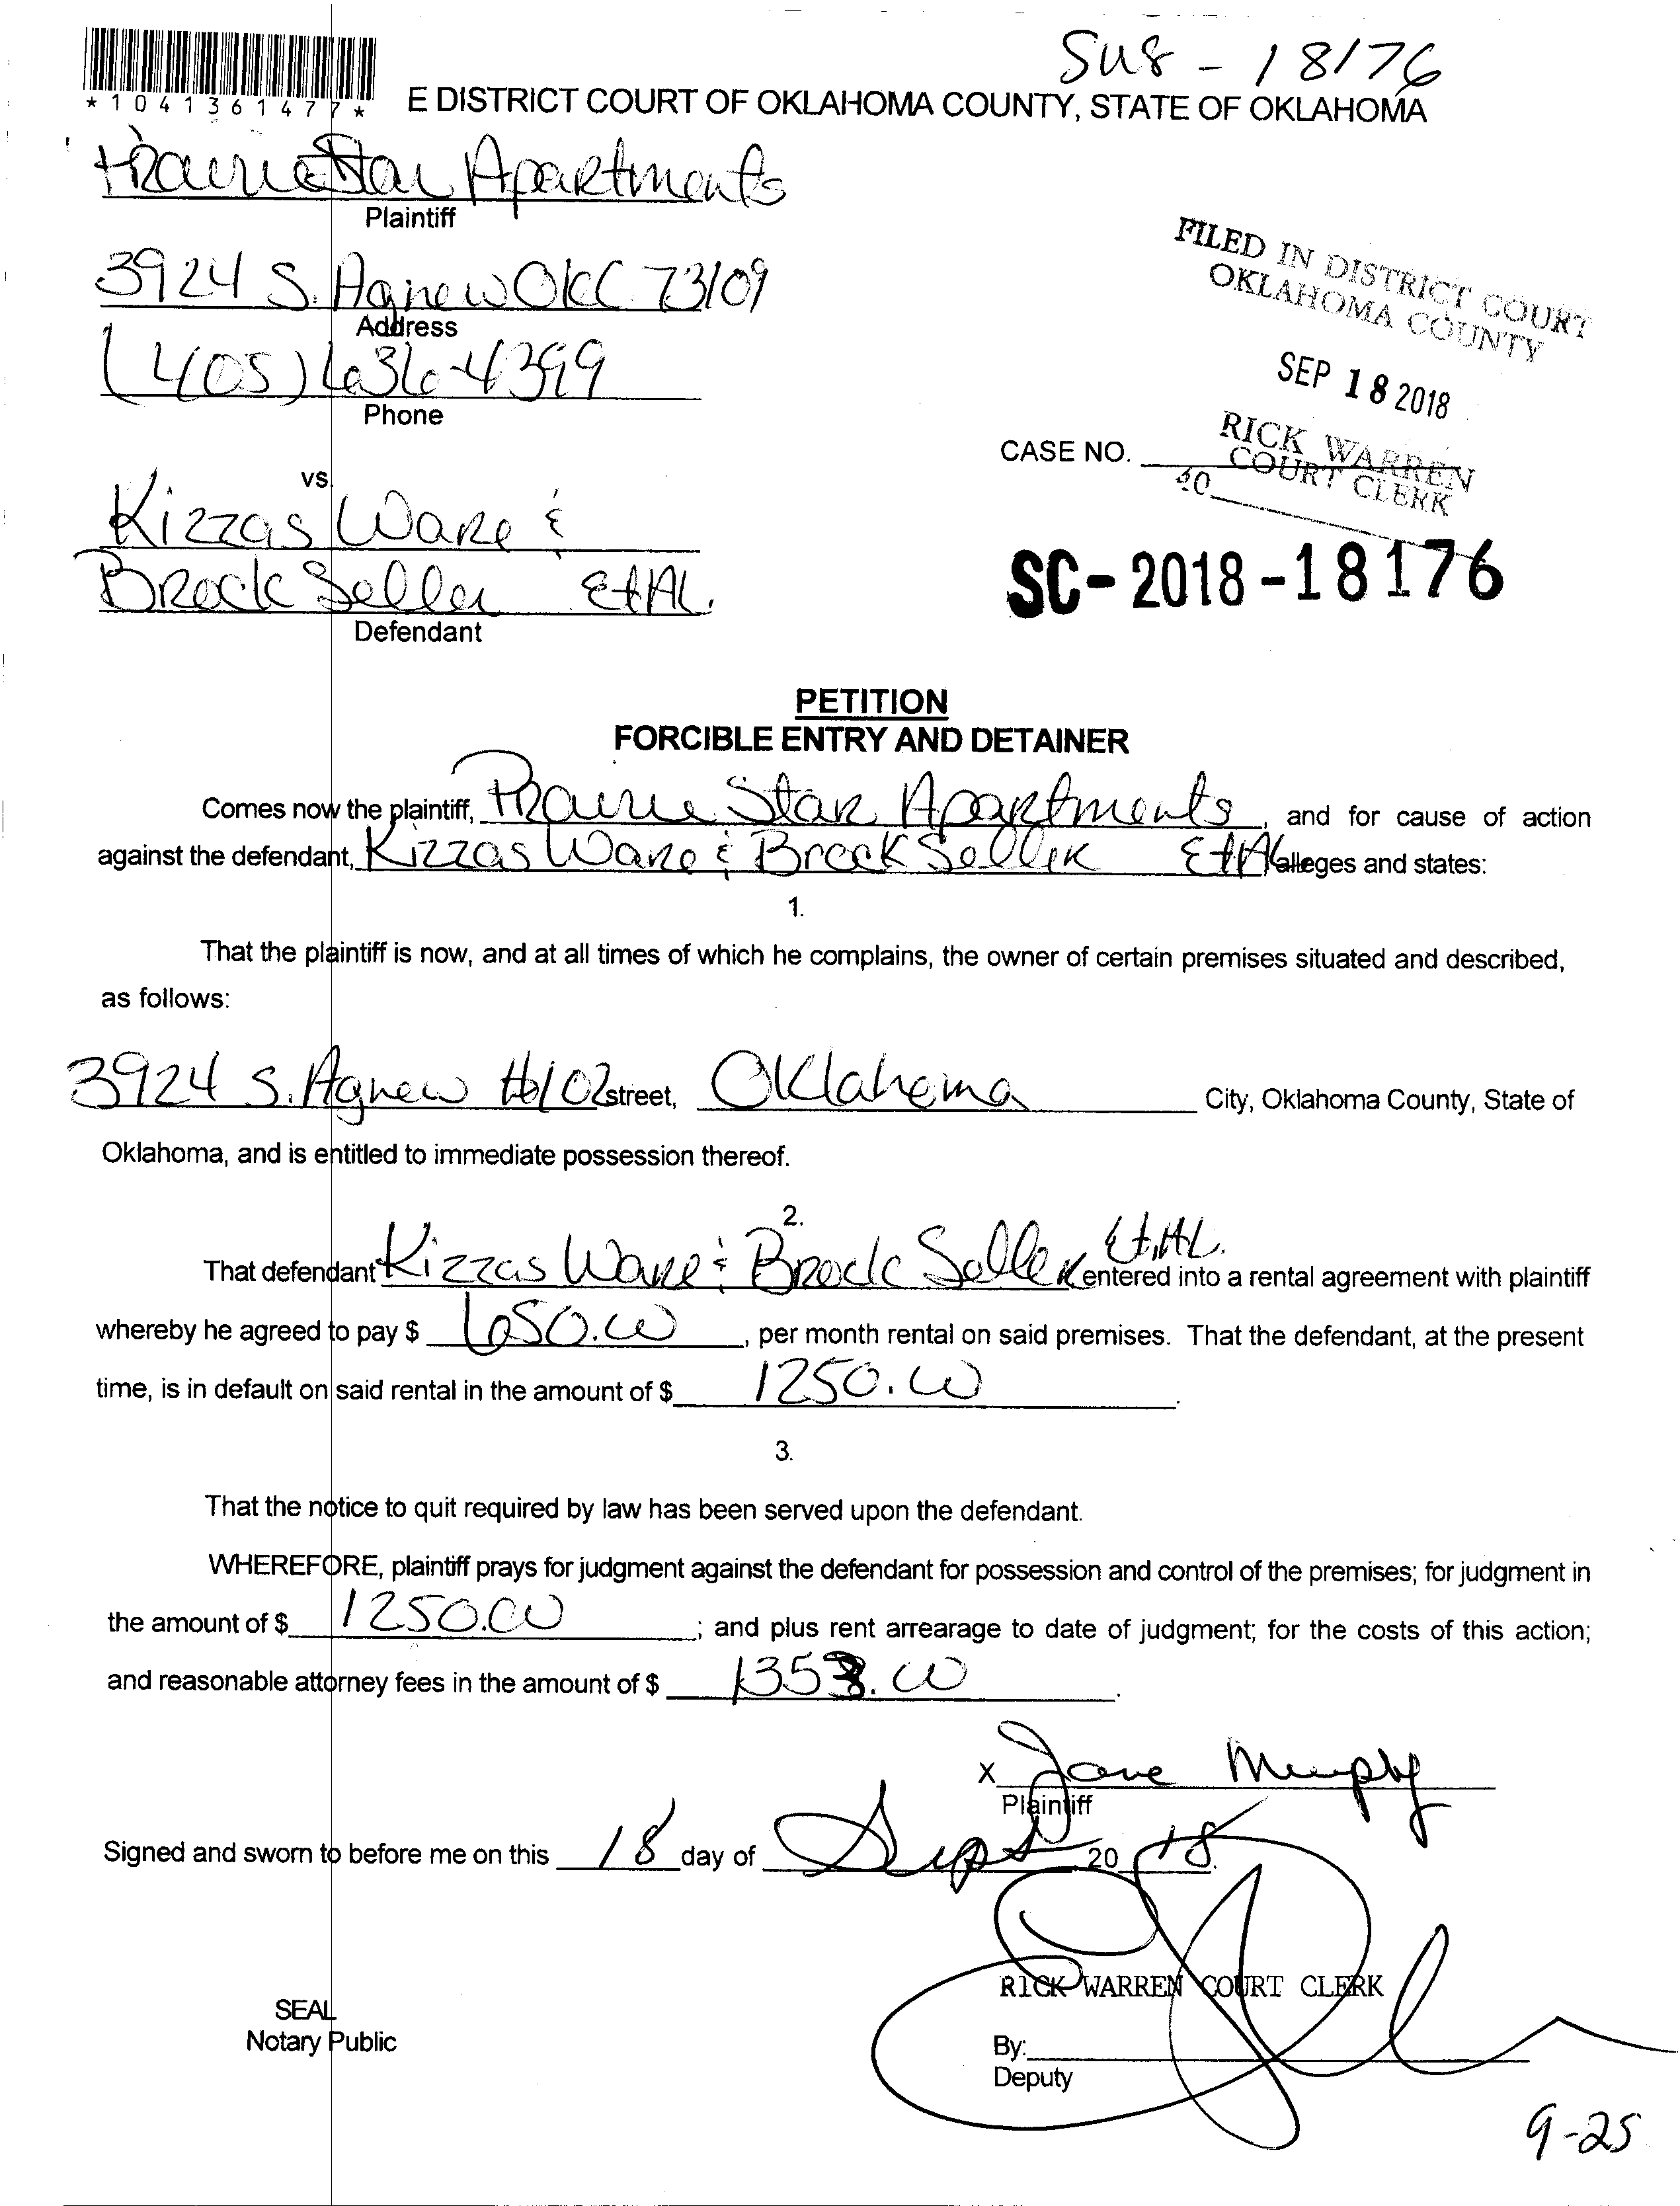 SUS - 18176
*1041361477*
E DISTRICT COURT OF OKLAHOMA COUNTY, STATE OF OKLAHOMA
Prairie Star Apartments
Plaintiff
3924 S. Agnew OKC 73109
Address
(405) 636-4399
Phone
FILED IN DISTRICT COURT
OKLAHOMA COUNTY
SEP 18 2018
RICK WARREN
COURT CLERK
CASE NO.
vs.
Kizzas Ware &
Brock Seller Et AL.
Defendant
SC-2018-18176
PETITION
FORCIBLE ENTRY AND DETAINER
Comes now the plaintiff, Prairie Star Apartments, and for cause of action
against the defendant, Kizzas Ware & Brock Seller Et AL alleges and states:
1.
That the plaintiff is now, and at all times of which he complains, the owner of certain premises situated and described,
as follows:
3924 S. Agnew #102 street, Oklahoma City, Oklahoma County, State of
Oklahoma, and is entitled to immediate possession thereof.
2.
That defendant Kizzas Ware & Brock Seller Et AL. entered into a rental agreement with plaintiff
whereby he agreed to pay $ 650.00, per month rental on said premises. That the defendant, at the present
time, is in default on said rental in the amount of $ 1250.00.
3.
That the notice to quit required by law has been served upon the defendant.
WHEREFORE, plaintiff prays for judgment against the defendant for possession and control of the premises; for judgment in
the amount of $ 1250.00; and plus rent arrearage to date of judgment; for the costs of this action;
and reasonable attorney fees in the amount of $ 1353.00.
X Jane Murphy
Plaintiff
Signed and sworn to before me on this 18 day of Sept 20 18.
RICK WARREN COURT CLERK
SEAL
Notary Public
By:
Deputy
9-25